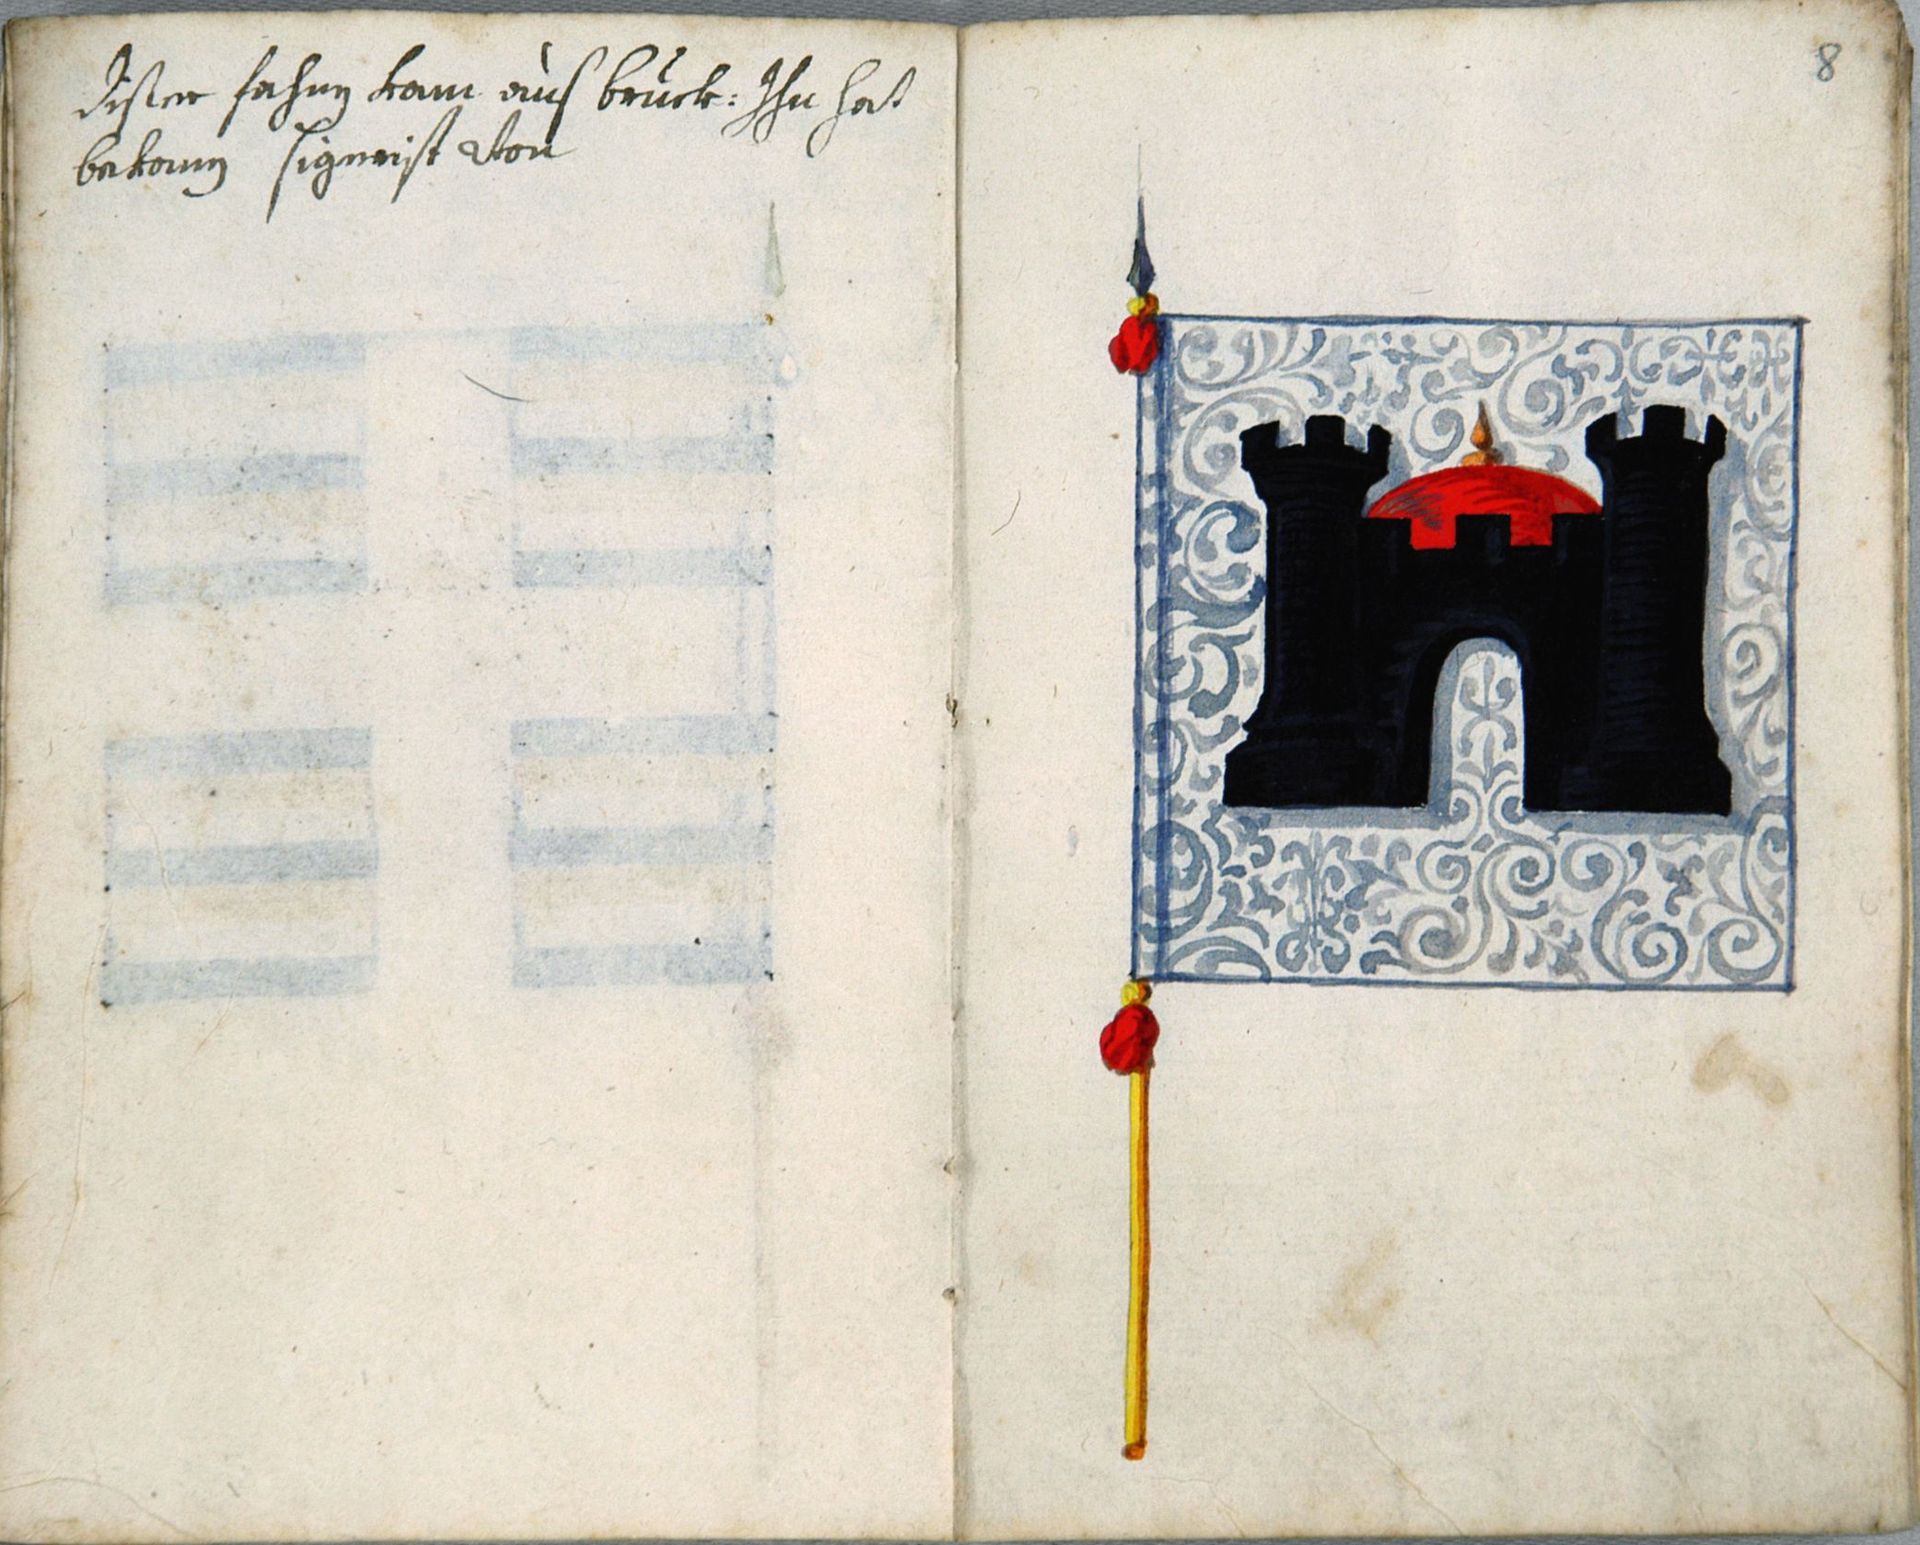 dister fahny kam auß bruck: Ihn hat
bekomy Sigmist von
8